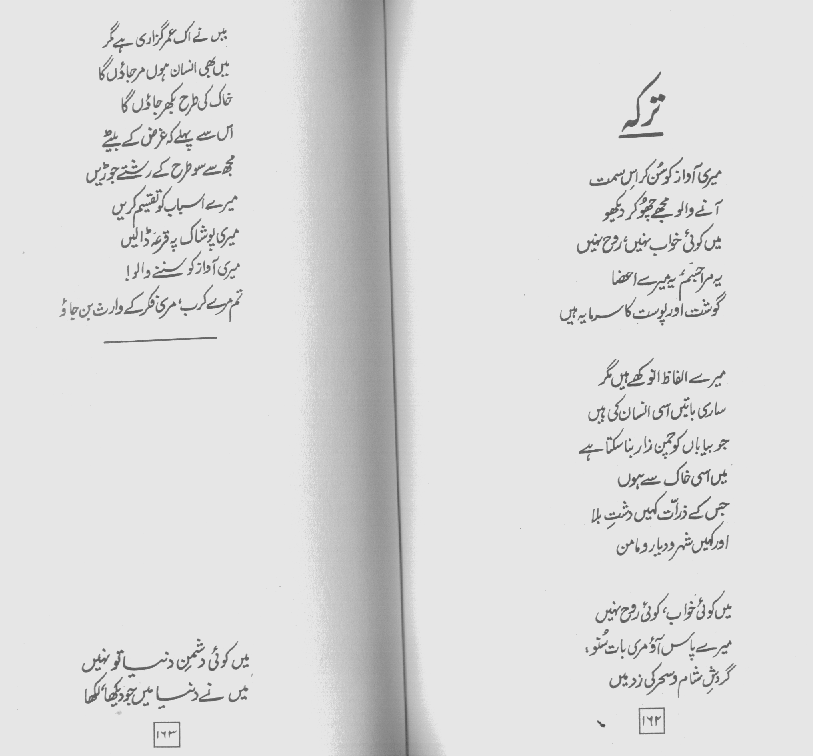 ترکہ
میری آواز کو سُن کر اس سمت
آنے والو مجھے چھُو کر دیکھو
میں کوئی خواب نہیں، رُوح نہیں
یہ مرا جسم، یہ میرے اعضا
گوشت اور پوست کا سرمایہ ہیں
میرے الفاظ انوکھے ہیں مگر
ساری باتیں اسی انسان کی ہیں
جو بیاباں کو چمن زار بنا سکتا ہے
میں اسی خاک سے ہوں
جس کے ذرات کہیں دشتِ بلا
اور کہیں شہر و دیار و مامن
میں کوئی خواب، کوئی رُوح نہیں
میرے پاس آؤ مری بات سُنو،
گردشِ شام و سحر کی زد میں
۱۶۲
میں نے اک عمر گزاری ہے مگر
میں بھی انسان ہوں مر جاؤں گا
خاک کی طرح بکھر جاؤں گا
اس سے پہلے کہ غرض کے بیٹے
مجھ سے سو طرح کے رشتے جوڑیں
میرے اسباب کو تقسیم کریں
میری پوشاک پہ قرعہ ڈالیں
میری آواز کو سننے والو!
تم مرے کرب، مری فکر کے وارث بن جاؤ
میں کوئی دشمنِ دنیا تو نہیں
میں نے دنیا میں جو دیکھا، لکھا
۱۶۳